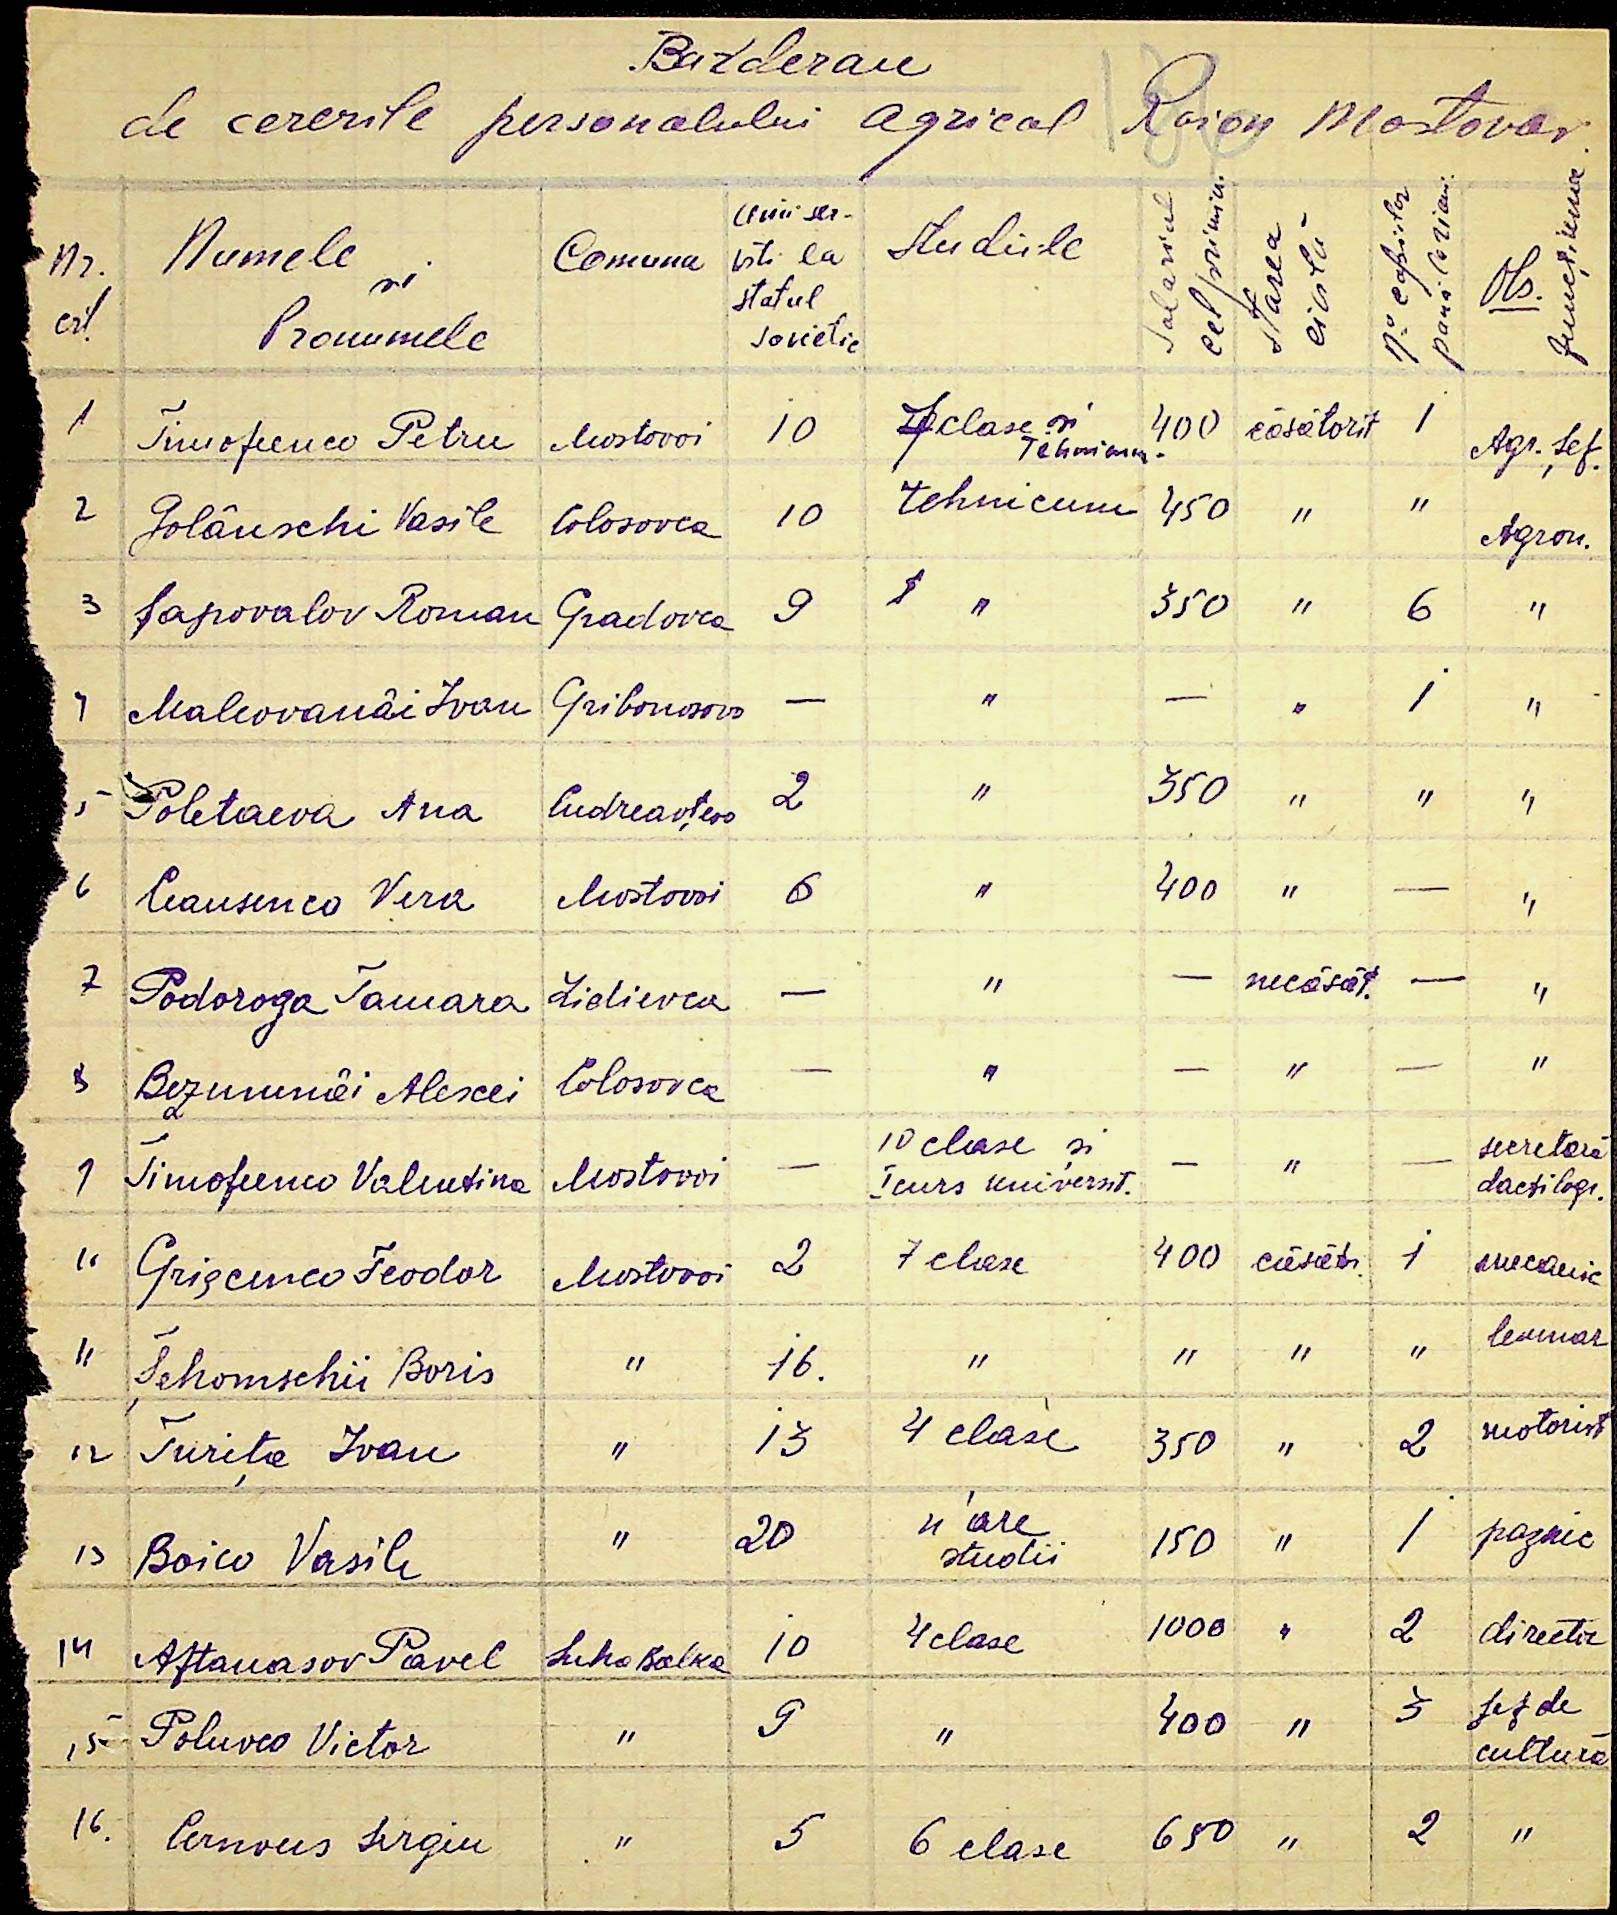 Bazderau
de cererile personalului agricol Raion Mostovoi.
Nr. crt. Numele si Pronumele Comuna Anii ser- viti la statul sovietic Studiile Salariul cel primin. Starea civilă No copiilor Obs. funcțiunea
1 Timofeenco Petru Mostovoi 10 7 clase si Tehnicum. 400 căsătorit 1 Agr. șef.
2 Golânschi Vasile Colosovca 10 Tehnicum 450 " " Agron.
3 Șapovalov Roman Gradovca 9 " 350 " 6 "
4 Malʹovanâi Ivan Gribonosovo — " — " 1 "
5 Poletaeva Ana Cudreavțevo 2 " 350 " " "
6 Causenco Vera Mostovoi 6 " 400 " — "
7 Podoroga Tamara Lidievca — " — necăsăt. — "
8 Bezumnâi Alexei Colosovca — " — " — "
9 Timofeenco Valentina Mostovoi — 10 clase și I curs universit. — " — secretară dactilogr.
10 Grișcenco Feodor Mostovoi 2 7 clase 400 căsăt. 1 mecanic
11 Șchomschii Boris " 16. " " " "
12 Turița Ivan " 13 4 clase 350 " 2 motorist
13 Boico Vasile " 20 n'are studii 150 " 1 paznic
14 Aftanasov Pavel Suha Balka 10 4 clase 1000 " 2 director
15 Poluvco Victor " 9 " 400 " 3 șef de cultură
16. Cernous Sergiu " 5 6 clase 650 " 2 "